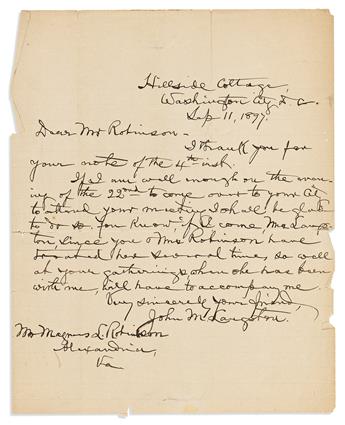 Hillside Cottage,
Washington City D. C.
Sep 11, 1897.
Dear Mr Robinson-
I thank you for
your note of the 4th inst.
If I am well enough on the even-
ing of the 22nd to come over to your City
to attend your meeting I shall be glad
to do so. You know, if I come, Mrs. Langs-
ton, since you & Mrs Robinson have
treated her several times, so well
at your gatherings, when she has been
with me, will have to accompany me.
Very sincerely your friend,
John M. Langston.
Mr Magnus L. Robinson
Alexandria,
Va